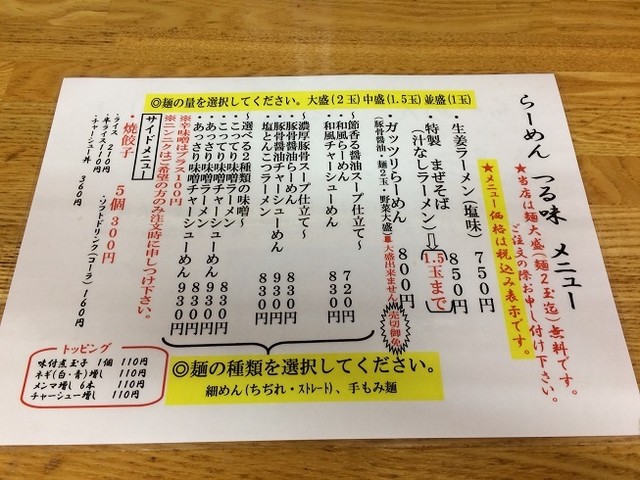 らーめん つる味 メニュー
★当店は麺大盛(麺2玉迄)無料です。
ご注文の際お申し付け下さい。
★メニュー価格は税込み表示です。
◎麺の量を選択してください。大盛(2玉)中盛(1.5玉)並盛(1玉)
・生姜ラーメン(塩味) 750円
・特製 まぜそば 850円
(汁なしラーメン)⇨1.5玉まで
・ガッツリらーめん 800円
(豚骨醤油・麺2玉・野菜大盛)■大盛出来ません 売切御免
～節香る醤油スープ仕立て～
・和風らーめん 720円
・和風チャーシューめん 830円
～濃厚豚骨スープ仕立て～
・豚骨醤油らーめん 830円
・豚骨醤油チャーシューめん 930円
・塩とんこつラーメン 830円
～選べる2種類の味噌～
・こってり味噌ラーメン 830円
・こってり味噌チャーシューめん 930円
・あっさり味噌ラーメン 830円
・あっさり味噌チャーシューめん 930円
※辛味噌はプラス100円
※ニンニクはご希望の方のみ注文時に申しつけ下さい。
サイドメニュー
・焼餃子 5個300円
・ライス 210円
・半ライス
・チャーシュー丼 360円
・ソフトドリンク(コーラ) 160円
◎麺の種類を選択してください。
細めん(ちぢれ・ストレート)、手もみ麺
トッピング
味付煮玉子 1個 110円
ネギ(白・青)増し 110円
メンマ増し 6本 110円
チャーシュー増し 110円